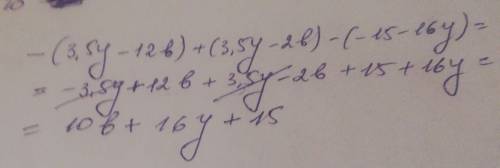 -(3,5y-12в)+(3,5y-2в)-(-15-16y)=
= -3,5y+12в+3,5y-2в+15+16y=
= 10в+16y+15